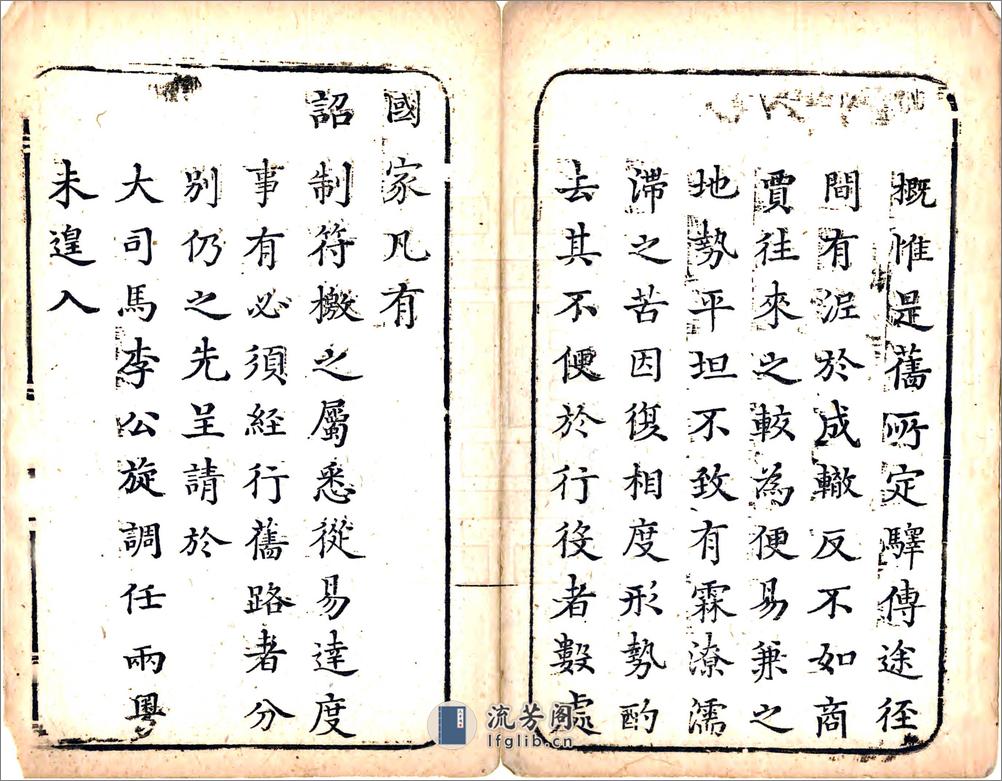 概惟是舊所定驛傳途徑
間有泥於成轍反不如商
賈往來之較為便易兼之
地勢平坦不致有霖潦濡
滯之苦因復相度形勢酌
去其不便於行役者數處
國家凡有
詔制符檄之屬悉從易達度
事有必須經行舊路者分
別仍之先呈請於
大司馬李公旋調任兩粵
未遑入
流芳阁
lfglib.cn